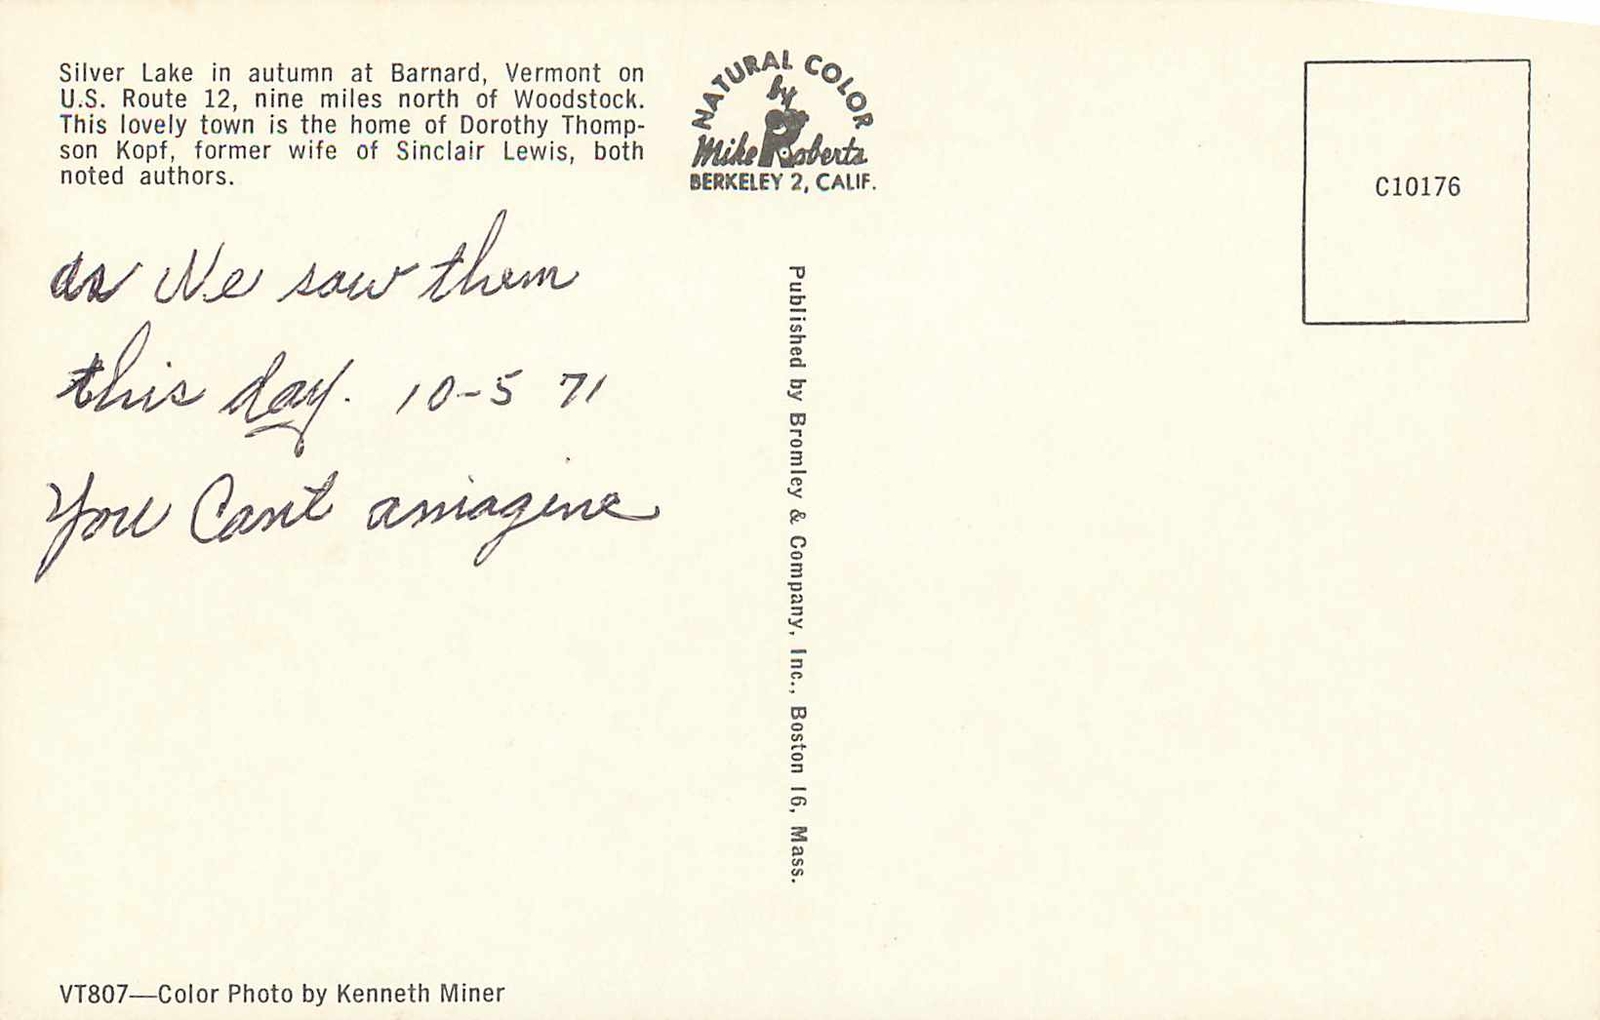 Silver Lake in autumn at Barnard, Vermont on
U.S. Route 12, nine miles north of Woodstock.
This lovely town is the home of Dorothy Thomp-
son Kopf, former wife of Sinclair Lewis, both
noted authors.
NATURAL COLOR
by
Mike Roberts
BERKELEY 2, CALIF.
C10176
as We saw them
this day. 10-5 71
You Cant amiagine
Published by Bromley & Company, Inc., Boston 16, Mass.
VT807—Color Photo by Kenneth Miner